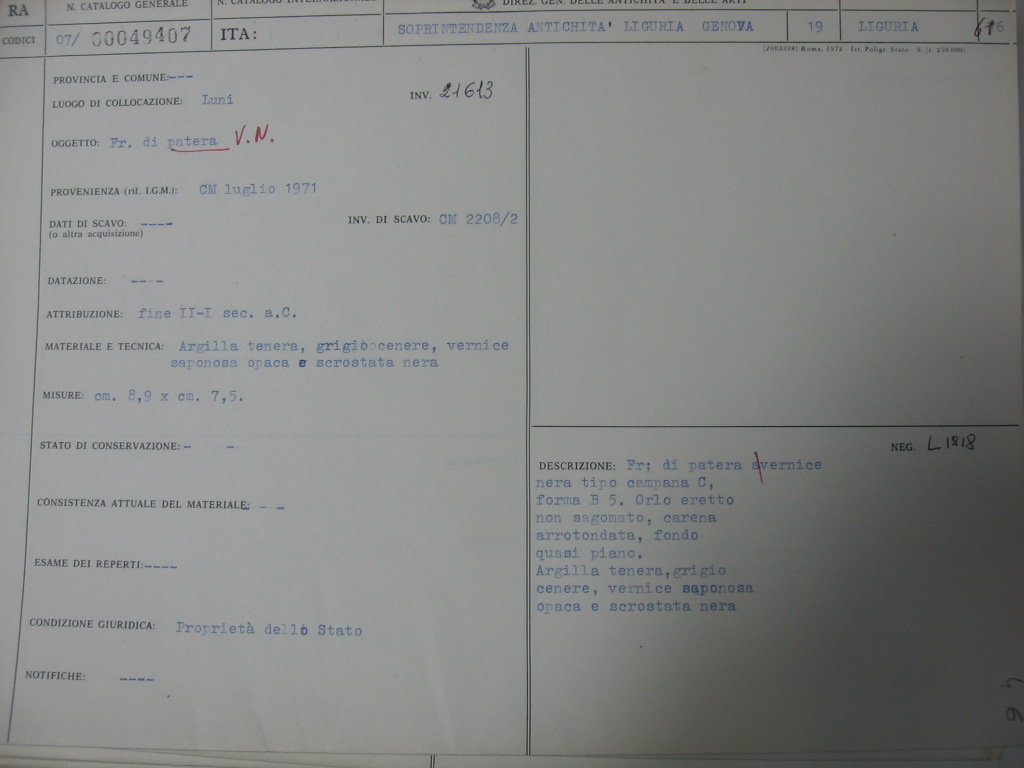 RA
N. CATALOGO GENERALE
N. CATALOGO INTERNAZIONALE
DIREZ. GEN. DELLE ANTICHITA' E BELLE ARTI
CODICI
07/ 00049407
ITA:
SOPRINTENDENZA ANTICHITA' LIGURIA GENOVA
19
LIGURIA
(2603398) Roma, 1972 - Ist. Poligr. Stato - S. (c. 250.000)
PROVINCIA E COMUNE:---
LUOGO DI COLLOCAZIONE: Luni
INV. 21613
OGGETTO: Fr. di patera V.N.
PROVENIENZA (rif. I.G.M.): CM luglio 1971
DATI DI SCAVO: ----
(o altra acquisizione)
INV. DI SCAVO: CM 2208/2
DATAZIONE: ----
ATTRIBUZIONE: fine II-I sec. a.C.
MATERIALE E TECNICA: Argilla tenera, grigio cenere, vernice
saponosa opaca e scrostata nera
MISURE: cm. 8,9 x cm. 7,5.
STATO DI CONSERVAZIONE: - -
CONSISTENZA ATTUALE DEL MATERIALE: - -
ESAME DEI REPERTI:----
CONDIZIONE GIURIDICA: Proprietà dello Stato
NOTIFICHE: ----
NEG. L1818
DESCRIZIONE: Fr; di patera avernice
nera tipo campana C,
forma B 5. Orlo eretto
non sagomato, carena
arrotondata, fondo
quasi piano.
Argilla tenera,grigio
cenere, vernice saponosa
opaca e scrostata nera